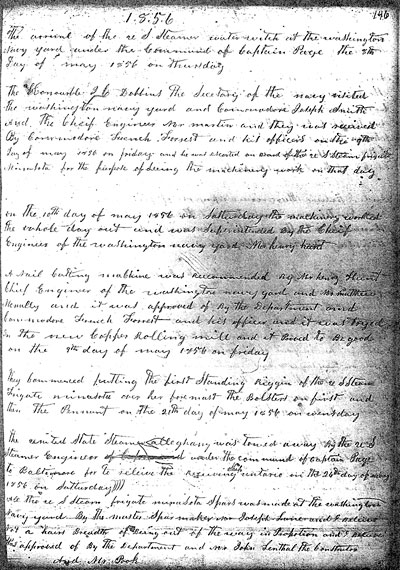 1856
146
The arrival of the u S Steamer water witch at the washington
navy yard under the Command of Captain Page the 8th
Day of may 1856 on thursday
The Honourble J C Dobbins The Secetary of the navy visited
the washington navy yard and Commodore Joseph Smith
And the Cheif Engineer Mr martin and they was received
By Commodore French Forrest and his officers on the 9th
Day of may 1856 on friday and he was escorted on Board of the u S Steam frigate
Minnesota for the purpose of Seeing the machinery work on that day
on the 10th day of may 1856 on Satturday the machinery worked
the whole day out and was Superintended By the Cheif
Engineer of the washington navy yard Mr henry hunt
A Nail Cutting machine was recommended By Mr henry Hunt
Chief Engineer of the washington navy yard and Mr matthew
and it was approved of By the Department and
Commodore French Forrest and his officer and it was tryed
in the new Copper Rolling mill and it Proved to Be good
on the 9th day of may 1856 on friday
They Commenced putting the first Standing Riggin of the u S Steam
frigate minnesota over her foremast the Bolsters on first and
then the Pennant on the 21st day of may 1856 on wensday
the united State Steamer alleghany was towed away By the u S
Steamer Engineer under the command of captain Page
to Baltimore for to relieve the receiving Ship ontario on the 24th day of may
1856 on Satturday
all the u S Steam frigate minnesota Spars was made at the washington
navy yard By the master Spar maker mr Joseph and
not a hairs Breadth of Being out of the way in Propotion and
was approved of By the Department and mr John Lenthal the Constructor
And Mr Pook